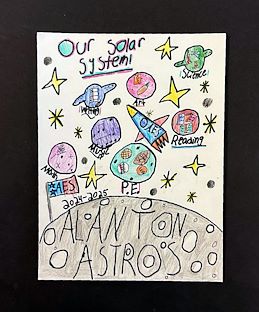 Our Solar
System!
Science
Art
AES
Reading
Music
Math
P.E
AES
2024-2025
ALANTON
ASTROS